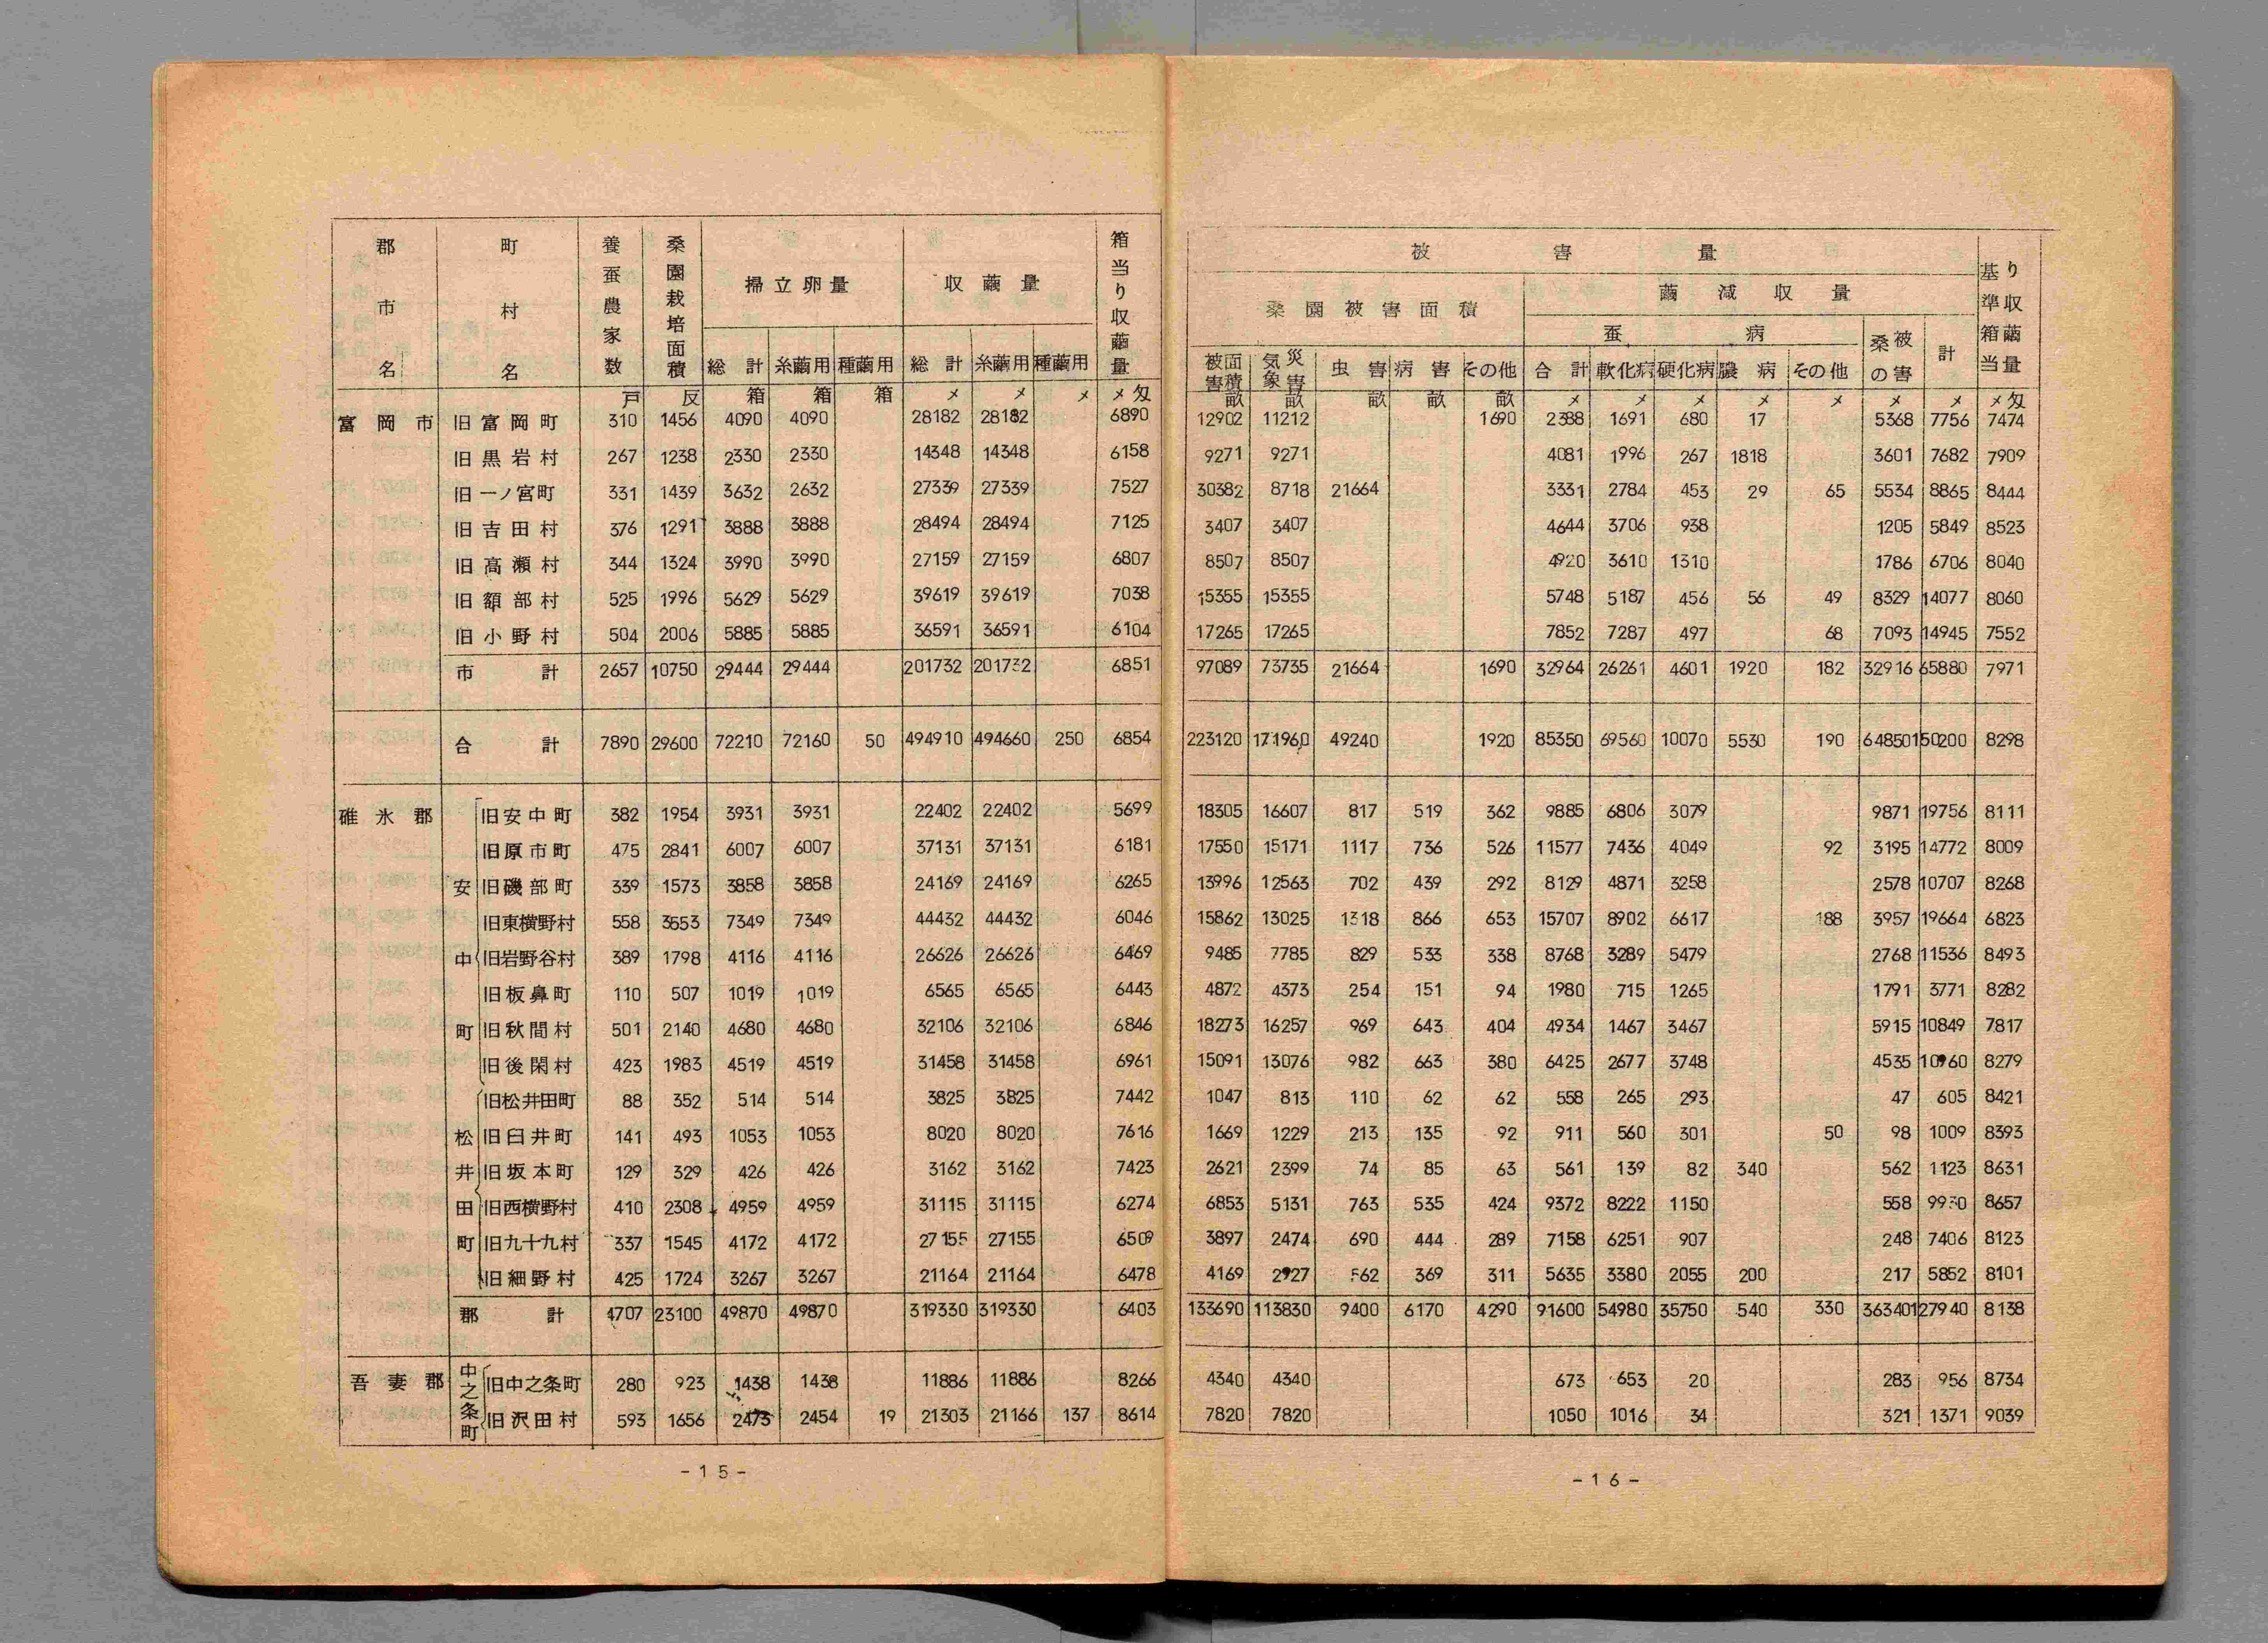 郡市名 町村名 養蚕農家数 桑園栽培面積 掃立卵量 収繭量 箱当り収繭量
総計 糸繭用 種繭用 総計 糸繭用 種繭用
戸 反 箱 箱 箱 メ メ メ メ匁
富岡市 旧富岡町 310 1456 4090 4090 28182 28182 6890
旧黒岩村 267 1238 2330 2330 14348 14348 6158
旧一ノ宮町 331 1439 3632 2632 27339 27339 7527
旧吉田村 376 1291 3888 3888 28494 28494 7125
旧高瀬村 344 1324 3990 3990 27159 27159 6807
旧額部村 525 1996 5629 5629 39619 39619 7038
旧小野村 504 2006 5885 5885 36591 36591 6104
市計 2657 10750 29444 29444 201732 201732 6851
合計 7890 29600 72210 72160 50 494910 494660 250 6854
碓氷郡 旧安中町 382 1954 3931 3931 22402 22402 5699
旧原市町 475 2841 6007 6007 37131 37131 6181
安 旧磯部町 339 1573 3858 3858 24169 24169 6265
旧東横野村 558 3553 7349 7349 44432 44432 6046
中 旧岩野谷村 389 1798 4116 4116 26626 26626 6469
旧板鼻町 110 507 1019 1019 6565 6565 6443
町 旧秋間村 501 2140 4680 4680 32106 32106 6846
旧後閑村 423 1983 4519 4519 31458 31458 6961
旧松井田町 88 352 514 514 3825 3825 7442
松 旧臼井町 141 493 1053 1053 8020 8020 7616
井 旧坂本町 129 329 426 426 3162 3162 7423
田 旧西横野村 410 2308 4959 4959 31115 31115 6274
町 旧九十九村 337 1545 4172 4172 27155 27155 6509
旧細野村 425 1724 3267 3267 21164 21164 6478
郡計 4707 23100 49870 49870 319330 319330 6403
吾妻郡 中之条町 旧中之条町 280 923 1438 1438 11886 11886 8266
旧沢田村 593 1656 2473 2454 19 21303 21166 137 8614
-15-
被害量
桑園被害面積 繭減収量 基準箱当り収繭量
蚕病 桑の被害 計
被害面積 気象災害 虫害 病害 その他 合計 軟化病 硬化病 膿病 その他
畝 畝 畝 畝 畝 メ メ メ メ メ メ メ メ匁
12902 11212 1690 2388 1691 680 17 5368 7756 7474
9271 9271 4081 1996 267 1818 3601 7682 7909
30382 8718 21664 3331 2784 453 29 65 5534 8865 8444
3407 3407 4644 3706 938 1205 5849 8523
8507 8507 4920 3610 1310 1786 6706 8040
15355 15355 5748 5187 456 56 49 8329 14077 8060
17265 17265 7852 7287 497 68 7093 14945 7552
97089 73735 21664 1690 32964 26261 4601 1920 182 32916 65880 7971
223120 171960 49240 1920 85350 69560 10070 5530 190 64850 150200 8298
18305 16607 817 519 362 9885 6806 3079 9871 19756 8111
17550 15171 1117 736 526 11577 7436 4049 92 3195 14772 8009
13996 12563 702 439 292 8129 4871 3258 2578 10707 8268
15862 13025 1318 866 653 15707 8902 6617 188 3957 19664 6823
9485 7785 829 533 338 8768 3289 5479 2768 11536 8493
4872 4373 254 151 94 1980 715 1265 1791 3771 8282
18273 16257 969 643 404 4934 1467 3467 5915 10849 7817
15091 13076 982 663 380 6425 2677 3748 4535 10960 8279
1047 813 110 62 62 558 265 293 47 605 8421
1669 1229 213 135 92 911 560 301 50 98 1009 8393
2621 2399 74 85 63 561 139 82 340 562 1123 8631
6853 5131 763 535 424 9372 8222 1150 558 8657
3897 2474 690 444 289 7158 6251 907 248 7406 8123
4169 2927 562 369 311 5635 3380 2055 200 217 5852 8101
133690 113830 9400 6170 4290 91600 54980 35750 540 330 36340 127940 8138
4340 4340 673 653 20 283 956 8734
7820 7820 1050 1016 34 321 1371 9039
-16-